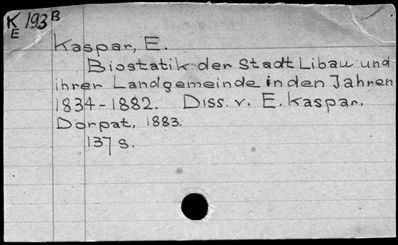 K 193 B
E
Kaspar, E.
Biostatik der Stadt Libau und
ihrer Landgemeinde in den Jahren
1834-1882. Diss. v. E. Kaspar.
Dorpat, 1883.
137 s.